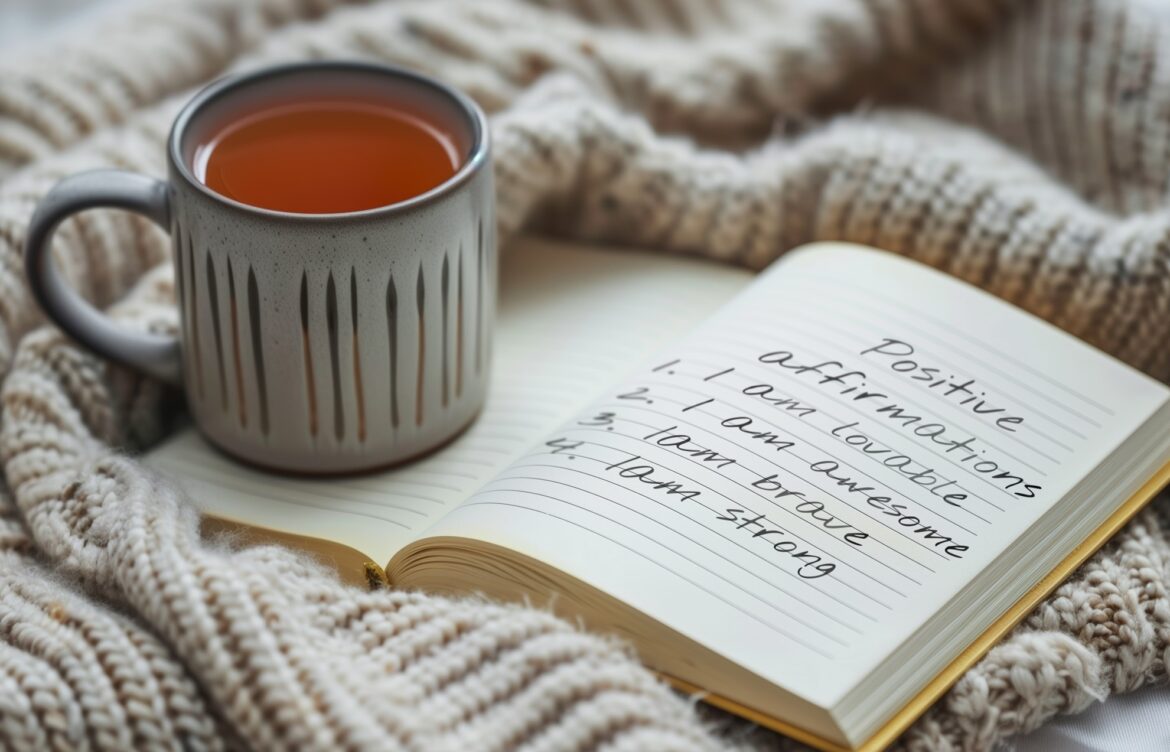 Positive
affirmations
1. I am lovable
2. I am awesome
3. I am brave
4. I am strong